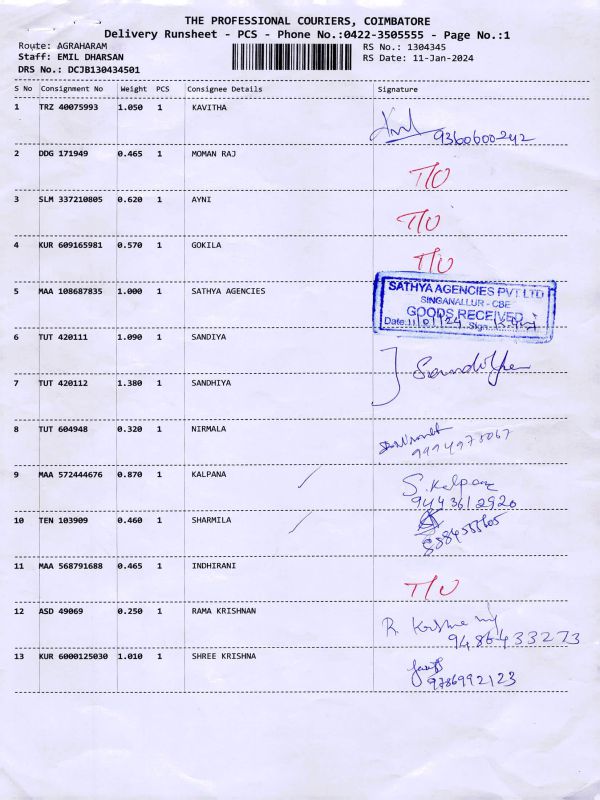 THE PROFESSIONAL COURIERS, COIMBATORE
Delivery Runsheet - PCS - Phone No.:0422-3505555 - Page No.:1
Route: AGRAHARAM RS No.: 1304345
Staff: EMIL DHARSAN RS Date: 11-Jan-2024
DRS No.: DCJB130434501
S No Consignment No Weight PCS Consignee Details Signature
1 TRZ 40075993 1.050 1 KAVITHA
9360600242
2 DDG 171949 0.465 1 MOMAN RAJ
T/U
3 SLM 337210805 0.620 1 AYNI
T/U
4 KUR 609165981 0.570 1 GOKILA
T/U
5 MAA 108687835 1.000 1 SATHYA AGENCIES
SATHYA AGENCIES PVT LTD
SINGANALLUR - CBE
GOODS RECEIVED
Date: 11/01/24 Sign
6 TUT 420111 1.090 1 SANDIYA
7 TUT 420112 1.380 1 SANDHIYA
8 TUT 604948 0.320 1 NIRMALA
9 MAA 572444676 0.870 1 KALPANA
S. Kalpana
9443612920
10 TEN 103909 0.460 1 SHARMILA
11 MAA 568791688 0.465 1 INDHIRANI
T/U
12 ASD 49069 0.250 1 RAMA KRISHNAN
9486433273
13 KUR 6000125030 1.010 1 SHREE KRISHNA
9786992123